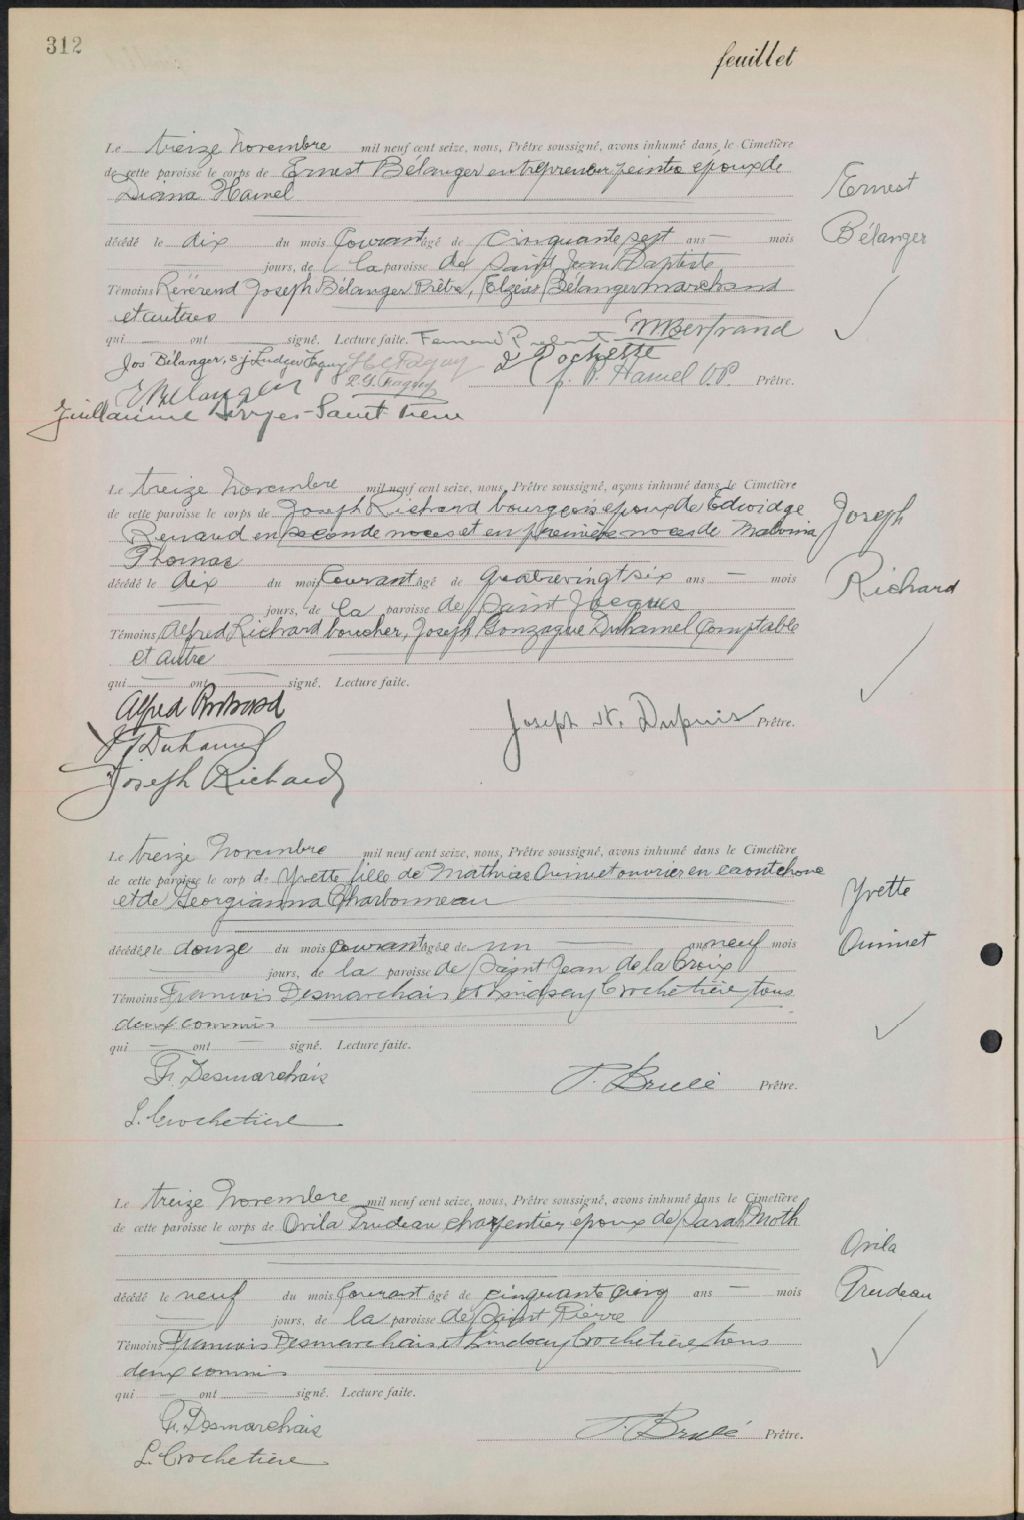 312
feuillet
Le treize Novembre mil neuf cent seize, nous, Prêtre soussigné, avons inhumé dans le Cimetière
de cette paroisse le corps de Ernest Bélanger entrepreneur peintre époux de
Diana Hamel
Ernest
Bélanger
décédé le dix du mois Courant âgé de Cinquante sept ans — mois
jours, de la paroisse de Saint Jean Baptiste
Témoins Révérend Joseph Bélanger Prêtre, Elzéar Bélanger marchand
et autres
qui — ont — signé. Lecture faite. M Bertrand
Jos Bélanger, s.j. Ludger Faguy Rochette
J. P. Hamel O.P. Prêtre.
E Bélanger
Guillaume
Le treize Novembre mil neuf cent seize, nous, Prêtre soussigné, avons inhumé dans le Cimetière
de cette paroisse le corps de Joseph Richard bourgeois époux de Edwidge
Renaud en seconde noces et en première noces de Malvina
Thomas
Joseph
Richard
décédé le dix du mois Courant âgé de quatrevingt six ans — mois
— jours, de la paroisse de Saint Jacques
Témoins Alfred Richard boucher, Joseph Gonzague Duhamel Comptable
et autre
qui — ont — signé. Lecture faite.
Alfred Richard
Joseph N. Dupuis Prêtre.
J G Duhamel
Joseph Richard
Le treize Novembre mil neuf cent seize, nous, Prêtre soussigné, avons inhumé dans le Cimetière
de cette paroisse le corp de Yvette fille de Mathias Ouimet ouvrier en caoutchouc
et de Georgianna Charbonneau
Yvette
Ouimet
décédée le douze du mois courant âgée de un — an neuf mois
— jours, de la paroisse de Saint Jean de la Croix
Témoins Francois Desmarchais et Lindsay Crochetière tous
deux commis
qui — ont — signé. Lecture faite.
Fr. Desmarchais
P. Brulé Prêtre.
L. Crochetière
Le treize Novembre mil neuf cent seize, nous, Prêtre soussigné, avons inhumé dans le Cimetière
de cette paroisse le corps de Ovila Trudeau charpentier époux de Sarah Moth
Ovila
Trudeau
décédé le neuf du mois Courant âgé de cinquante cinq ans — mois
— jours, de la paroisse de Saint Pierre
Témoins Francois Desmarchais et Lindsay Crochetière tous
deux commis
qui — ont — signé. Lecture faite.
Fr. Desmarchais
P. Brulé Prêtre.
L. Crochetière